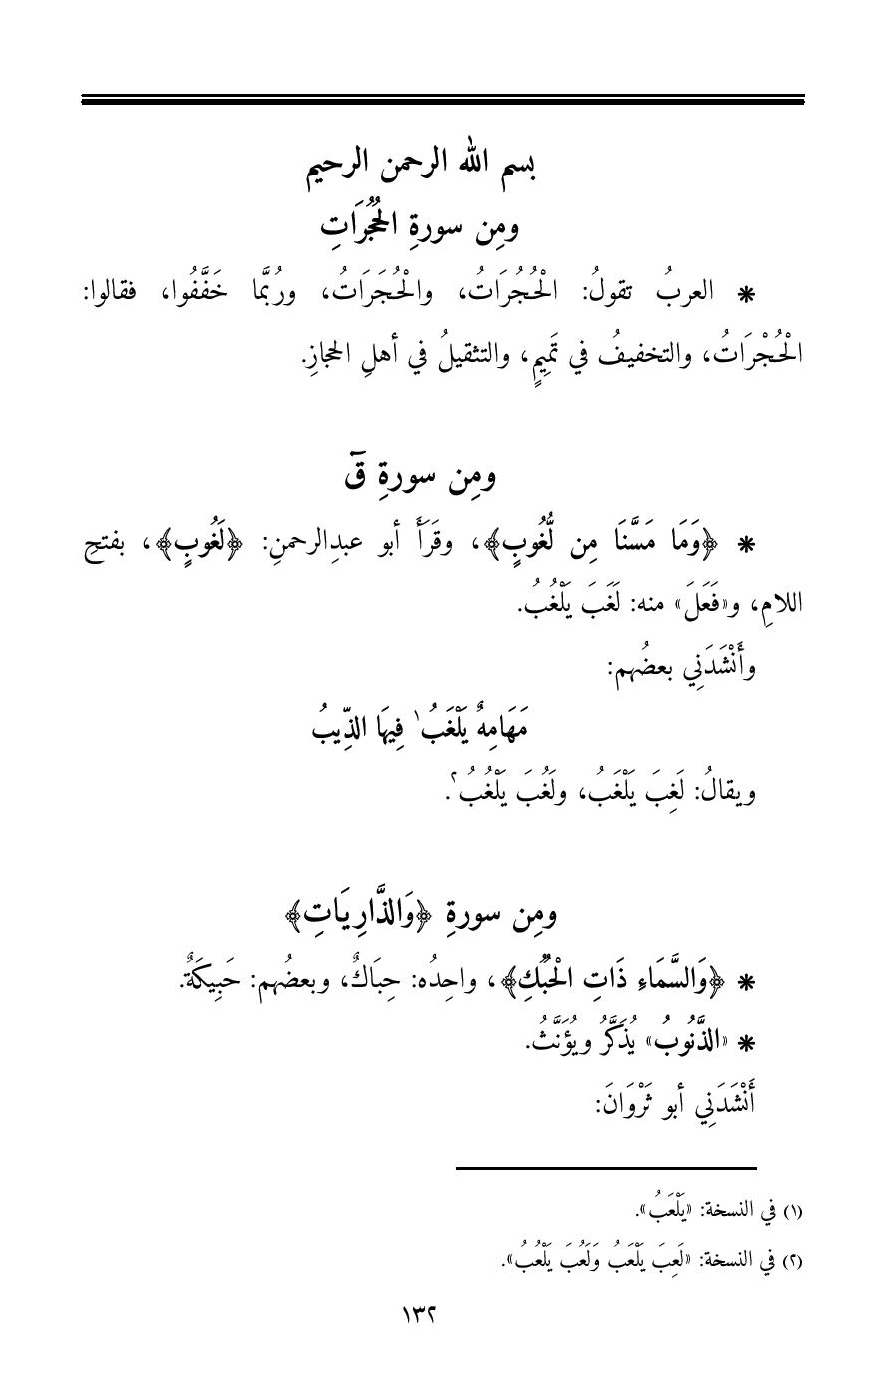 بسم الله الرحمن الرحيم
ومِن سورةِ الحُجُرَاتِ
* العربُ تقولُ: الْحُجُرَاتُ، والْحُجَرَاتُ، ورُبَّما خَفَّفُوا، فقالوا:
الْحُجْرَاتُ، والتخفيفُ في تَمِيمٍ، والتثقيلُ في أهلِ الحجازِ.
ومِن سورةِ قۤ
* ﴿وَمَا مَسَّنَا مِن لُّغُوبٍ﴾، وقَرَأَ أبو عبدِالرحمنِ: ﴿لَغُوبٍ﴾، بفتحِ
اللامِ، و«فَعَلَ» منه: لَغَبَ يَلْغُبُ.
وأَنْشَدَنِي بعضُهم:
مَهَامِهٌ يَلْغَبُ١ فِيهَا الذِّيبُ
ويقالُ: لَغِبَ يَلْغَبُ، ولَغُبَ يَلْغُبُ٢.
ومِن سورةِ ﴿وَالذَّارِيَاتِ﴾
* ﴿وَالسَّمَاءِ ذَاتِ الْحُبُكِ﴾، واحِدُه: حِبَاكٌ، وبعضُهم: حَبِيكَةٌ.
* «الذَّنُوبُ» يُذَكَّرُ ويُؤَنَّثُ.
أَنْشَدَنِي أبو ثَرْوَانَ:
(١) في النسخة: «يَلْعَبُ».
(٢) في النسخة: «لَعِبَ يَلْعَبُ وَلَعُبَ يَلْعُبُ».
١٣٢